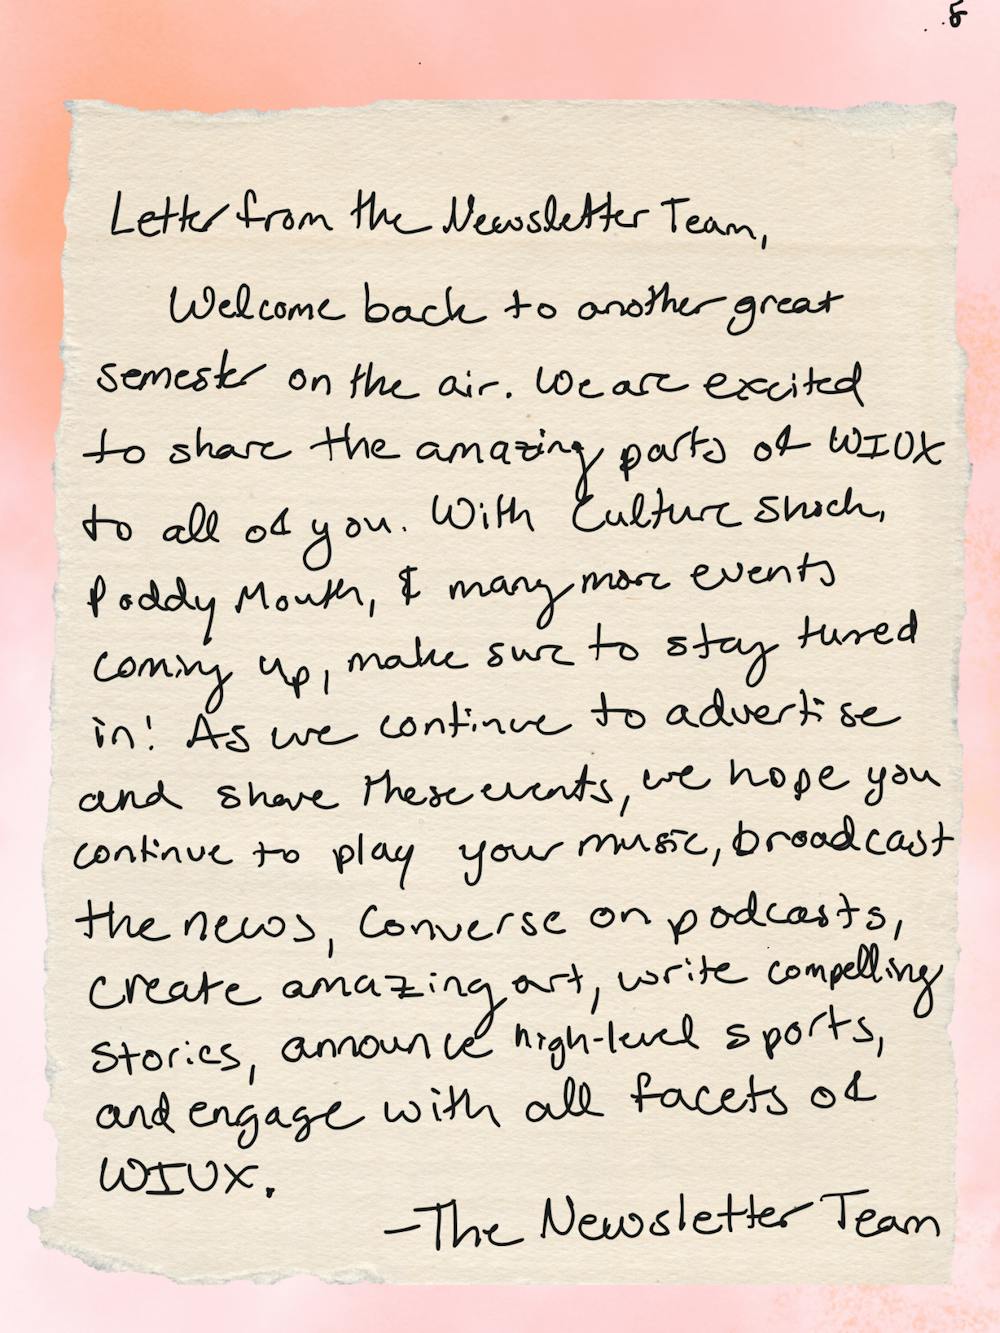 Letter from the Newsletter Team,
Welcome back to another great
semester on the air. We are excited
to share the amazing parts of WIUX
to all of you. With Culture Shock,
Poddy Mouth, & many more events
coming up, make sure to stay tuned
in! As we continue to advertise
and share these events, we hope you
continue to play your music, broadcast
the news, converse on podcasts,
create amazing art, write compelling
stories, announce high-level sports,
and engage with all facets of
WIUX.
-The Newsletter Team